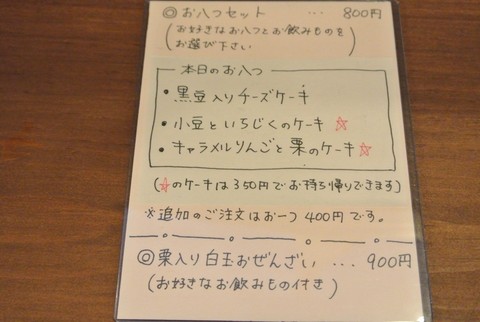 ◎お八つセット ... 800円
(お好きなお八つとお飲みものを
お選び下さい)
本日のお八つ
• 黒豆入りチーズケーキ
• 小豆といちじくのケーキ ☆
• キャラメルりんごと栗のケーキ ☆
(☆のケーキは350円でお持ち帰りできます)
※追加のご注文はお一つ400円です。
◎栗入り白玉おぜんざい ... 900円
(お好きなお飲みもの付き)